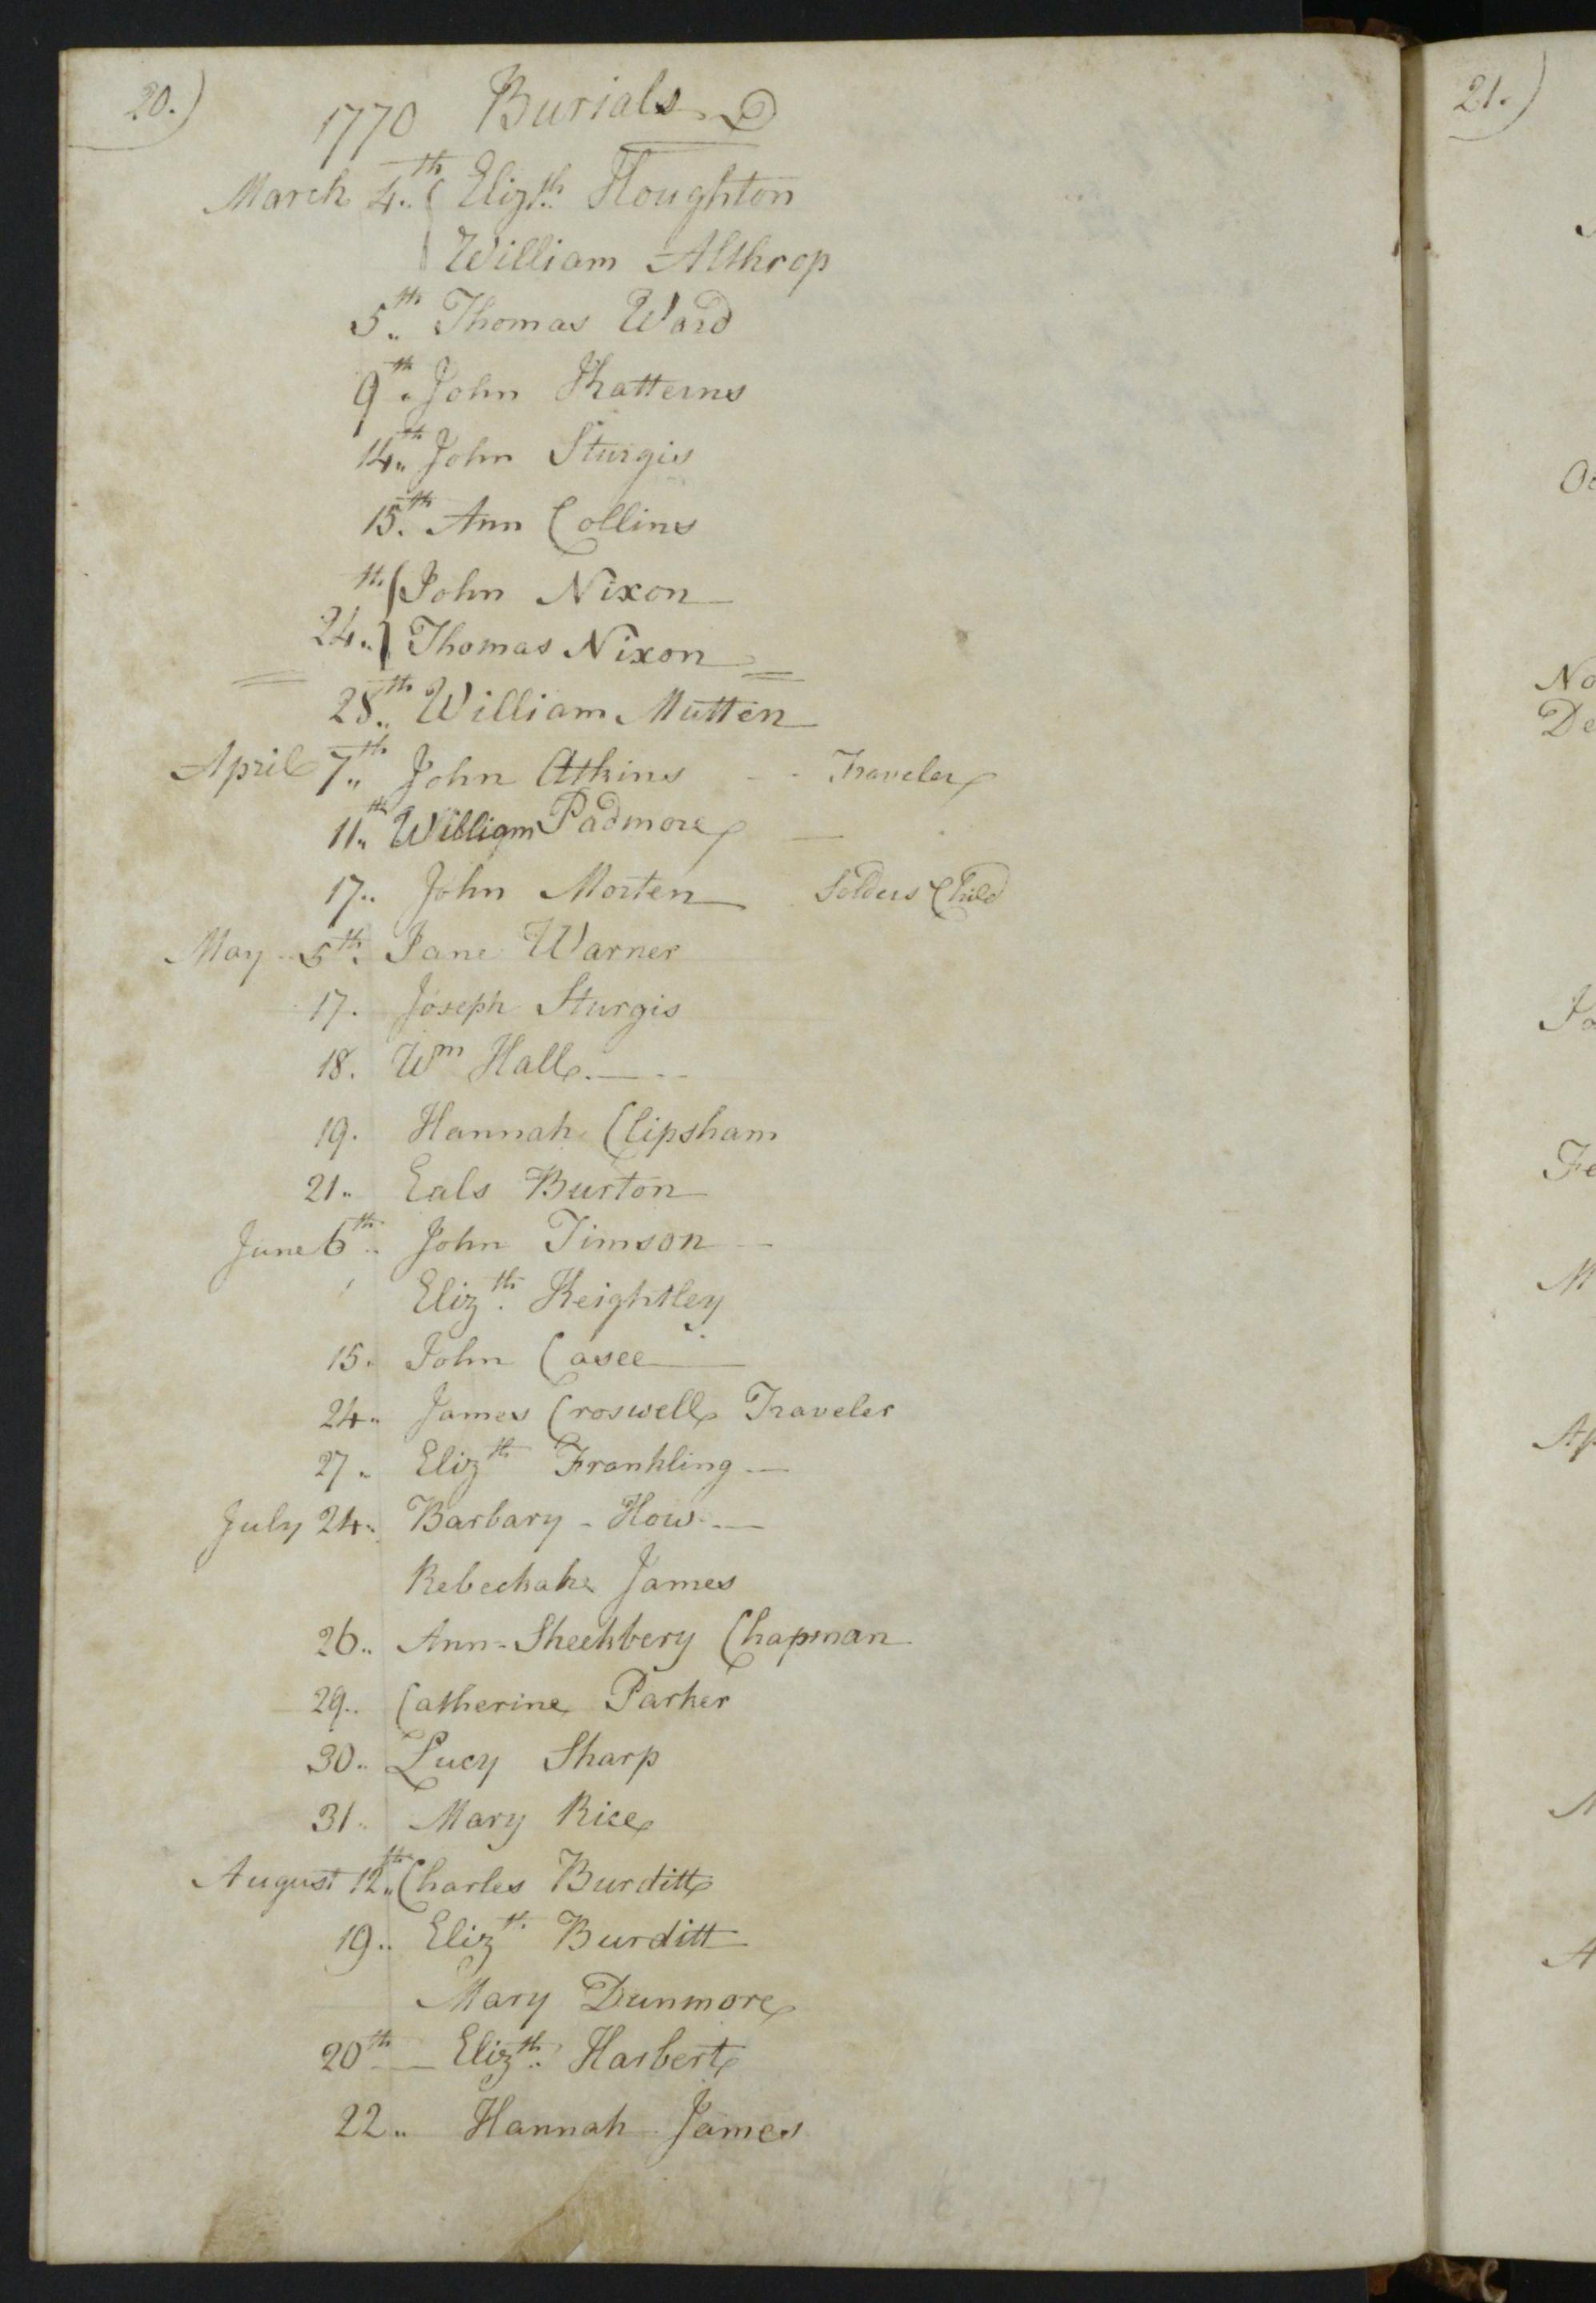 20.)
1770 Burials
March 4th Elizth Houghton
William Althrop
5th Thomas Ward
9th John Katterns
14th John Sturgis
15th Ann Collins
th John Nixon
24 Thomas Nixon
28th William Mutten
April 7th John Atkins Traveler
11th William Padmore
17 John Morten Solders Child
May 5th Jane Warner
17. Joseph Sturgis
18. Wm Hall
19. Hannah Clipsham
21 Eals Burton
June 6th John Timson
Elizth Keightley
15. John Casee
24 James Croswell Traveler
27 Elizth Frankling
July 24 Barbary - How
Rebeckah James
26 Ann - Sheekbery Chapman
29 Catherine Parker
30 Lucy Sharp
31 Mary Rice
August 12th Charles Burditt
19 Elizth Burditt
Mary Dunmore
20th Elizth Harbert
22 Hannah James
21.)
Oc
No
De
Ja
Fe
M
Ap